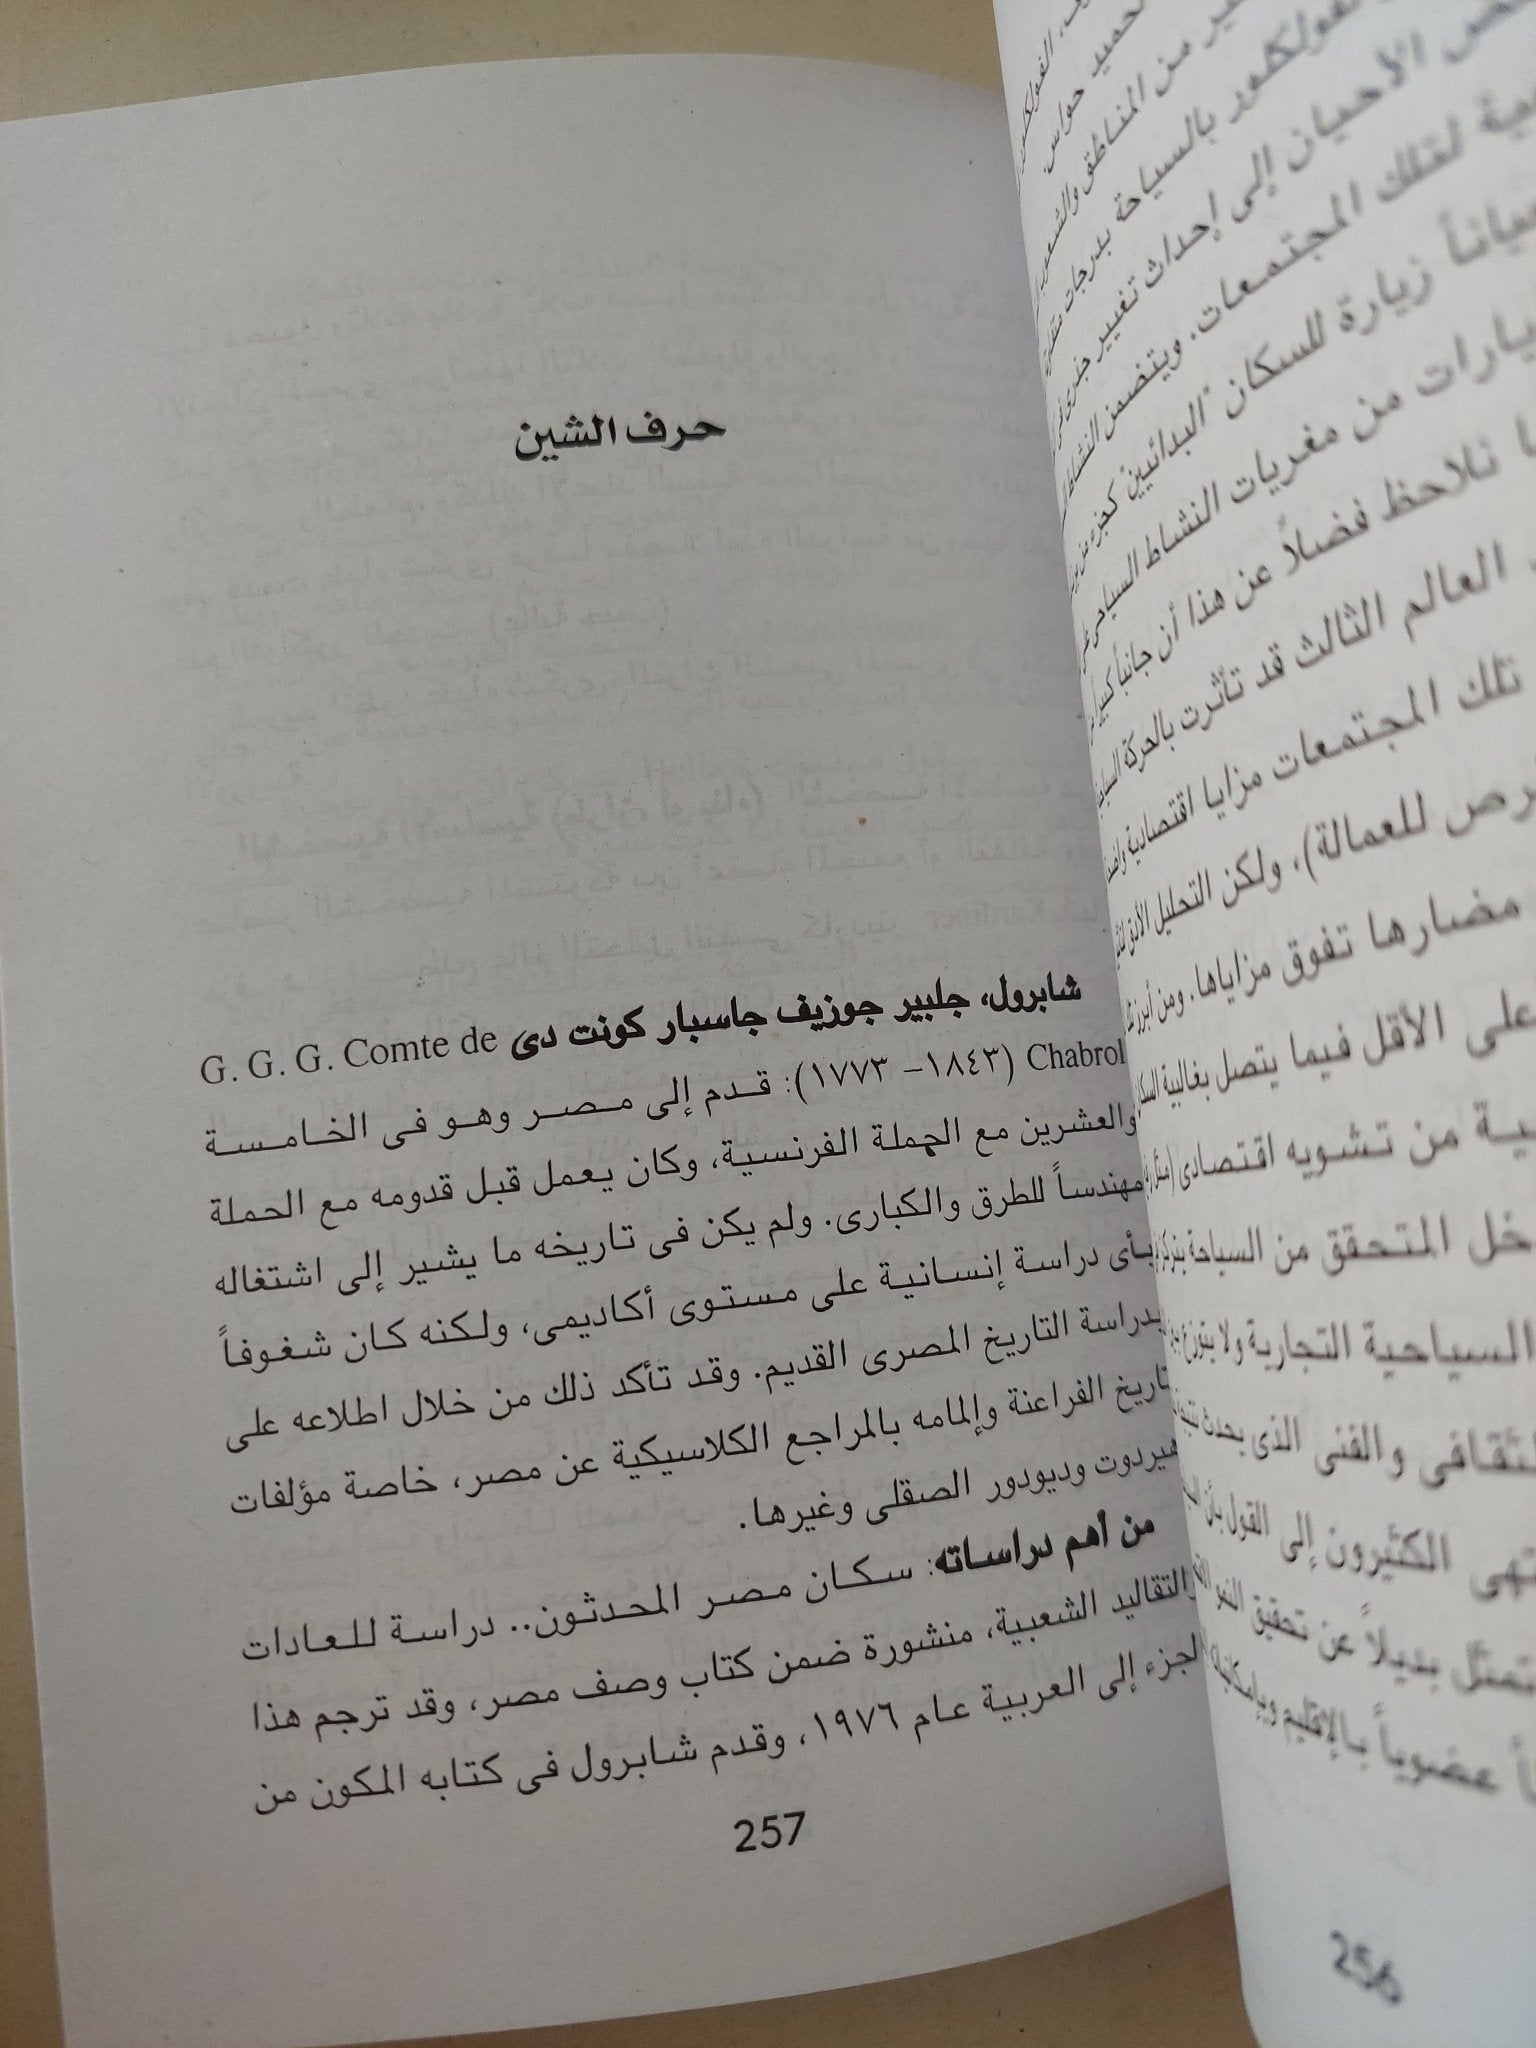 حميد حواس.
ير من المناطق والشعوب
فولكلور بالسياحة بدرجات
الأحيان إلى إحداث تغيير جذرى
لتلك المجتمعات. ويتضمن النشاط
زيارة للسكان "البدائيين" كجزء من
من مغريات النشاط السياحى
نلاحظ فضلاً عن هذا أن جانباً كبيراً
العالم الثالث قد تأثرت بالحركة
تلك المجتمعات مزايا اقتصادية
للعمالة). ولكن التحليل الأدق
مضارها تفوق مزاياها. ومن أبرز
على الأقل فيما يتصل بغالبية
من تشويه اقتصادى (مثل
المتحقق من السياحة
السياحية التجارية ولا يتوزع
والفنى الذى يحدث
الكثيرون إلى القول بأن
تمثل بديلاً عن تحقيق النمو
عضوياً بالإقليم
256
حرف الشين
شابرول، جلبير جوزيف جاسبار كونت دى G. G. G. Comte de
Chabrol (١٨٤٣– ١٧٧٣): قدم إلى مصر وهو فى الخامسة
والعشرين مع الحملة الفرنسية، وكان يعمل قبل قدومه مع الحملة
مهندساً للطرق والكبارى. ولم يكن فى تاريخه ما يشير إلى اشتغاله
بأى دراسة إنسانية على مستوى أكاديمى، ولكنه كان شغوفاً
بدراسة التاريخ المصرى القديم. وقد تأكد ذلك من خلال اطلاعه على
تاريخ الفراعنة وإلمامه بالمراجع الكلاسيكية عن مصر، خاصة مؤلفات
هيردوت وديودور الصقلى وغيرها.
من أهم دراساته: سكان مصر المحدثون.. دراسة للعادات
والتقاليد الشعبية، منشورة ضمن كتاب وصف مصر، وقد ترجم هذا
الجزء إلى العربية عام ١٩٧٦، وقدم شابرول فى كتابه المكون من
257